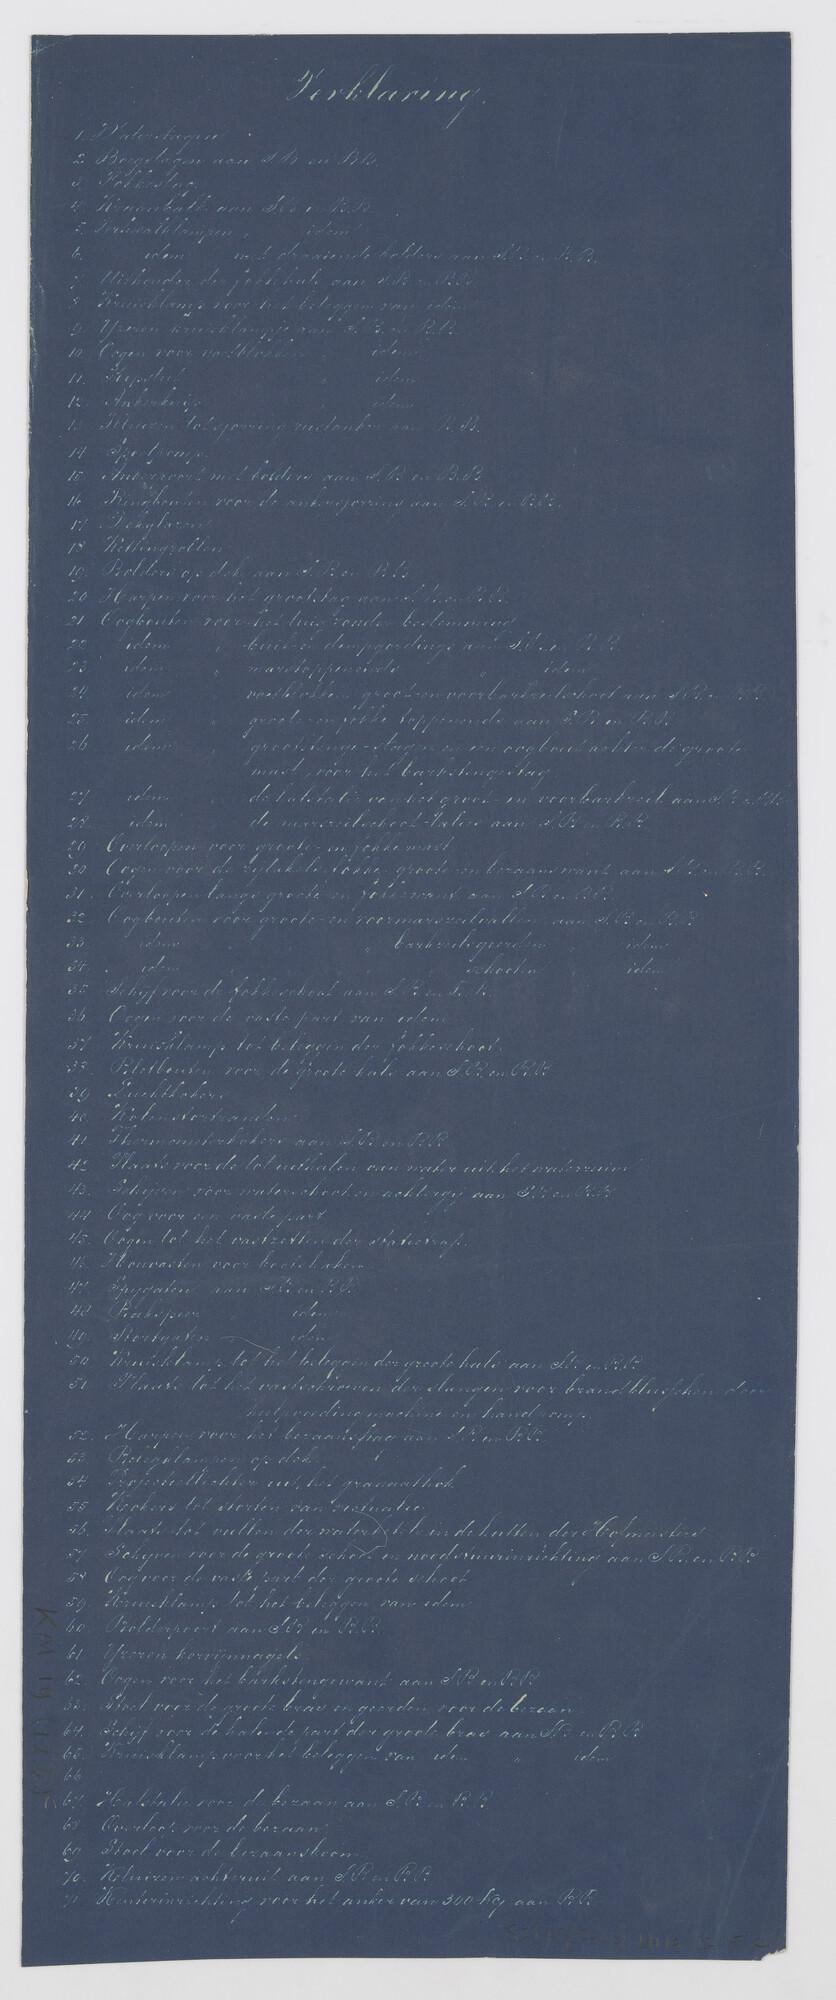 Verklaring.
1. Waterstagen
2. Boegstagen aan S.B. en B.B.
3. Fokkestag.
4. Kraanbalk aan S.B. en B.B.
5. idem
6. idem met draaiende bolders aan S.B. en B.B.
7. Uithouder der fokkehals aan S.B. en B.B.
8. Kruisklamp voor het beleggen van idem
9. Yzeren kruisklampje aan S.B. en B.B.
10. Oogen voor voetblokken " idem
11. " idem
12. idem
13. Kluizen tot sjorring aan B.B.
14.
15. met bolders aan S.B. en B.B.
16. Ringbouten voor de ankersjorring aan S.B. en B.B.
17. Dekglazen
18. Kettingrollen
19. Bolders op dek aan S.B. en B.B.
20. Harpen voor het grootstag aan S.B. en B.B.
21. Oogbouten voor het tuig zonder bestemming
22. idem " buik en dempgordings aan S.B. en B.B.
23. idem " marstoppenends " idem
24. idem " voetblokken groot en voorbarkzeilschoot aan S.B. en B.B.
25. idem " groote en fokke toppenends aan S.B. en B.B.
26. idem " grootstenge-stagen en een oogbout achter de groote
mast, voor het barkstengestag
27. idem " de halstalie van het groot- en voorbarkzeil aan S.B. en B.B.
28. idem " de marszeilschoot-talies aan S.B. en B.B.
29. Overloopen voor groote- en fokkemast
30. Oogen voor de zijtakels, fokke, groote en bezaanswant aan S.B. en B.B.
31. Overloopen langs groote en fokkewant aan S.B. en B.B.
32. Oogbouten voor groote- en voormarszeilvallen, aan S.B. en B.B.
33. idem " barkzeilsgeerden " idem
34. idem " schooten idem
35. Schijf voor de fokkeschoot aan S.B. en B.B.
36. Oogen voor de vaste part van idem
37. Kruisklamp tot beleggen der fokkeschoot.
38. voor de groote hals aan S.B. en B.B.
39. Luchtkokers
40. Kolenstortranden
41. Thermometerkokers aan S.B. en B.B.
42. Plaats voor de tot uithalen van water uit het waterruim
43. Schijven voor waterschoot en achtergij aan S.B. en B.B.
44. Oog voor een vaste part
45. Oogen tot het vastzetten der statietrap.
46. Houvasten voor kooishaken
47. Spygaten aan S.B. en B.B.
48. idem
49. Stortgaten idem
50. Kruisklamp tot het beleggen der groote hals aan S.B. en B.B.
51. Plaats tot het vastschroeven der slangen voor brandblusschen door
hulpvoedingmachine en handpomp.
52. Harpen voor het bezaanstag aan S.B. en B.B.
53. Beleghklampen op dek
54. Projectiellichter uit het granaathok
55. Kokers tot storten van victualie
56. Plaats tot vullen der in de hutten der Hofmeesters
57. Schijven voor de groote schoot en noodstuurinrichting aan S.B. en B.B.
58. Oog voor de vaste part der groote schoot
59. Kruisklamp tot het beleggen van idem
60. Bolderpoort aan S.B. en B.B.
61. Yzeren korvijnnagels.
62. Oogen voor het barkstengewant aan S.B. en B.B.
63. Stoel voor de groote bras en geerden voor de bezaan
64. Schijf voor de halende part der groote bras aan S.B. en B.B.
65. Kruisklamp voor het beleggen van idem " idem
66
67. Halstalie voor de bezaan aan S.B. en B.B.
68. Overloop voor de bezaan
69. Stoel voor de bezaansboom
70. Kluizen achteruit aan S.B. en B.B.
71. Kenterinrichting voor het anker van 300 kg aan B.B.